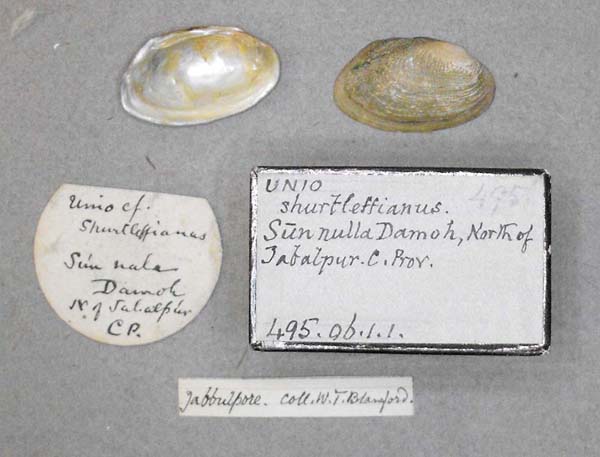 Unio cf.
Shurtleffianus
Sún nala
Damoh
N. of Jabalpúr
C.P.
UNIO
495
shurtleffianus.
Sún nulla Damoh, North of
Jabalpur. C. Prov.
495.06.1.1.
Jabbulpore. Coll. W.T. Blanford.